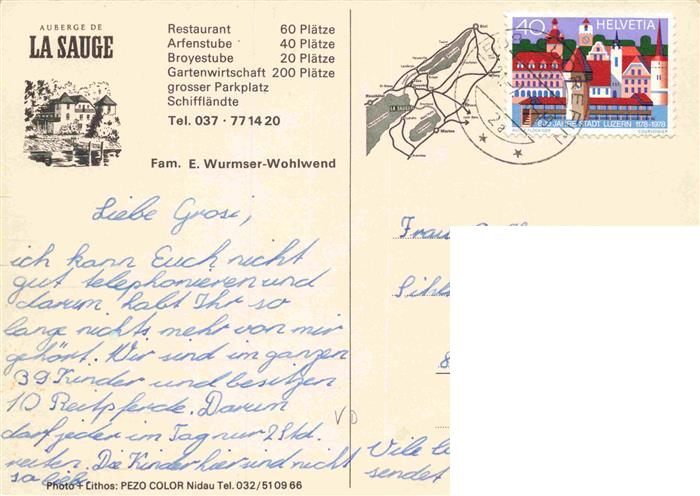 AUBERGE DE
LA SAUGE
Restaurant 60 Plätze
Arfenstube 40 Plätze
Broyestube 20 Plätze
Gartenwirtschaft 200 Plätze
grosser Parkplatz
Schifflände
Tel. 037 · 77 14 20
Fam. E. Wurmser-Wohlwend
LA SAUGE
Biel
Murten
40 HELVETIA
800 JAHRE STADT LUZERN 1178-1978
COURVOISIER
Liebe Grosi,
ich kann Euch nicht
gut telephonieren und
darum habt Ihr so
lange nichts mehr von mir
gehört. Wir sind im ganzen
39 Kinder und besitzen
10 Reitpferde. Darum
darf jeder im Tag nur 2 Std.
reiten. Die Kinder hier sind nicht
so lieb.
Frau
8
VD
Vile
sendet
Photo + Lithos: PEZO COLOR Nidau Tel. 032/51 09 66